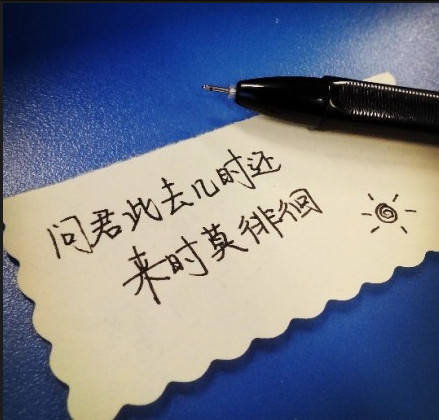 问君此去几时还
来时莫徘徊